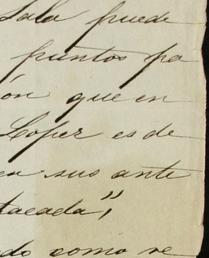 Sala puede
puntos pa
ón que en
López es de
en sus ante
tacada",
do como re